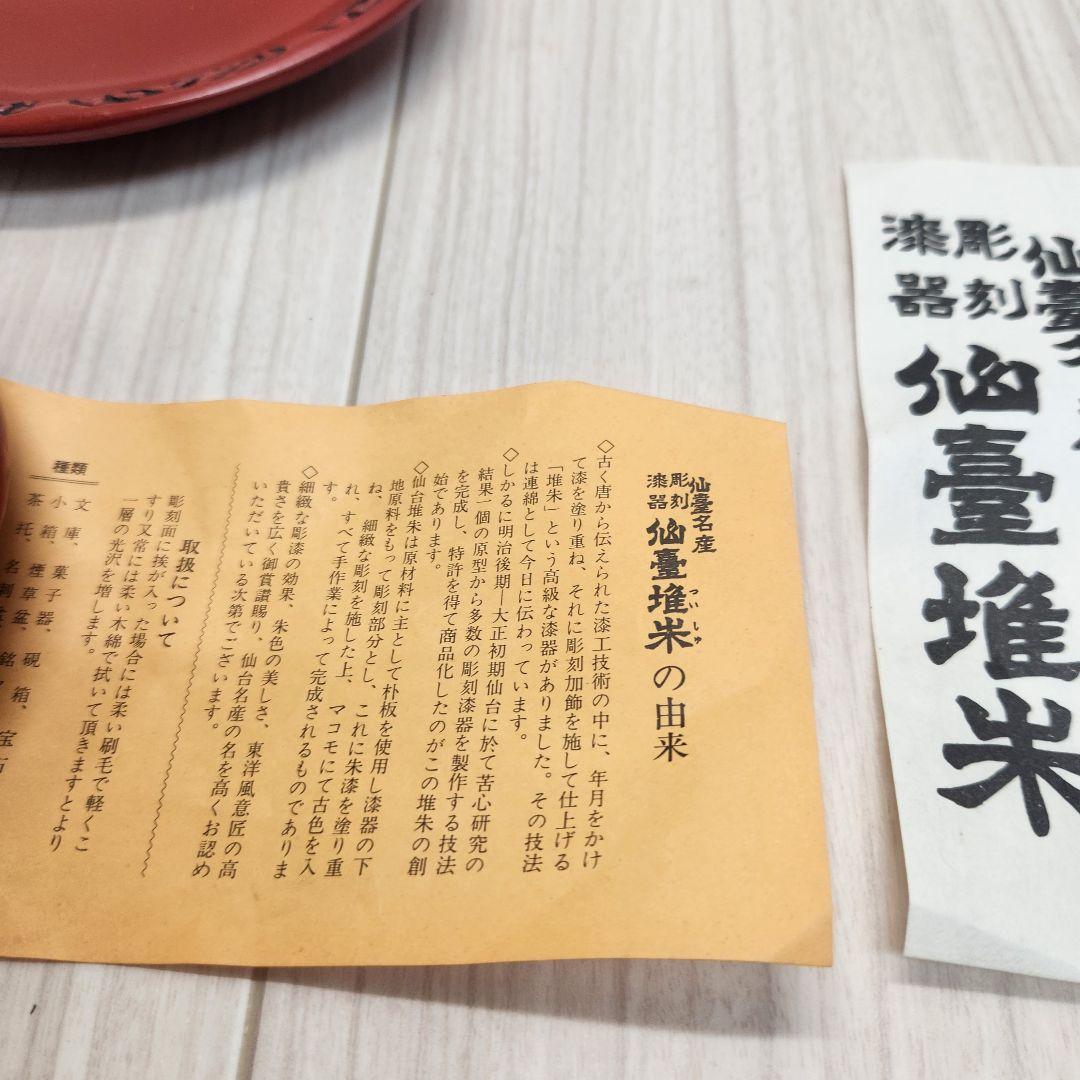 仙臺名産
彫刻
漆器
仙臺堆朱
彫刻
漆器
仙臺名産
仙臺堆朱の由来
ついしゅ
◇古く唐から伝えられた漆工技術の中に、年月をかけ
て漆を塗り重ね、それに彫刻加飾を施して仕上げる
「堆朱」という高級な漆器がありました。その技法
は連綿として今日に伝わっています。
◇しかるに明治後期―大正初期仙台に於て苦心研究の
結果一個の原型から多数の彫刻漆器を製作する技法
を完成し、特許を得て商品化したのがこの堆朱の創
始であります。
◇仙台堆朱は原材料に主として朴板を使用し漆器の下
地原料をもって彫刻部分とし、これに朱漆を塗り重
ね、細緻な彫刻を施した上、マコモにて古色を入
れ、すべて手作業によって完成されるものでありま
す。
◇細緻な彫漆の効果、朱色の美しさ、東洋風意匠の高
貴さを広く御賞讃賜り、仙台名産の名を高くお認め
いただいている次第でございます。
取扱について
彫刻面に挨が入った場合には柔い刷毛で軽くこ
すり又常には柔い木綿で拭いて頂きますとより
一層の光沢を増します。
種類
文庫、菓子器、硯箱、宝石
小箱、煙草盆、銘
茶托、名刺